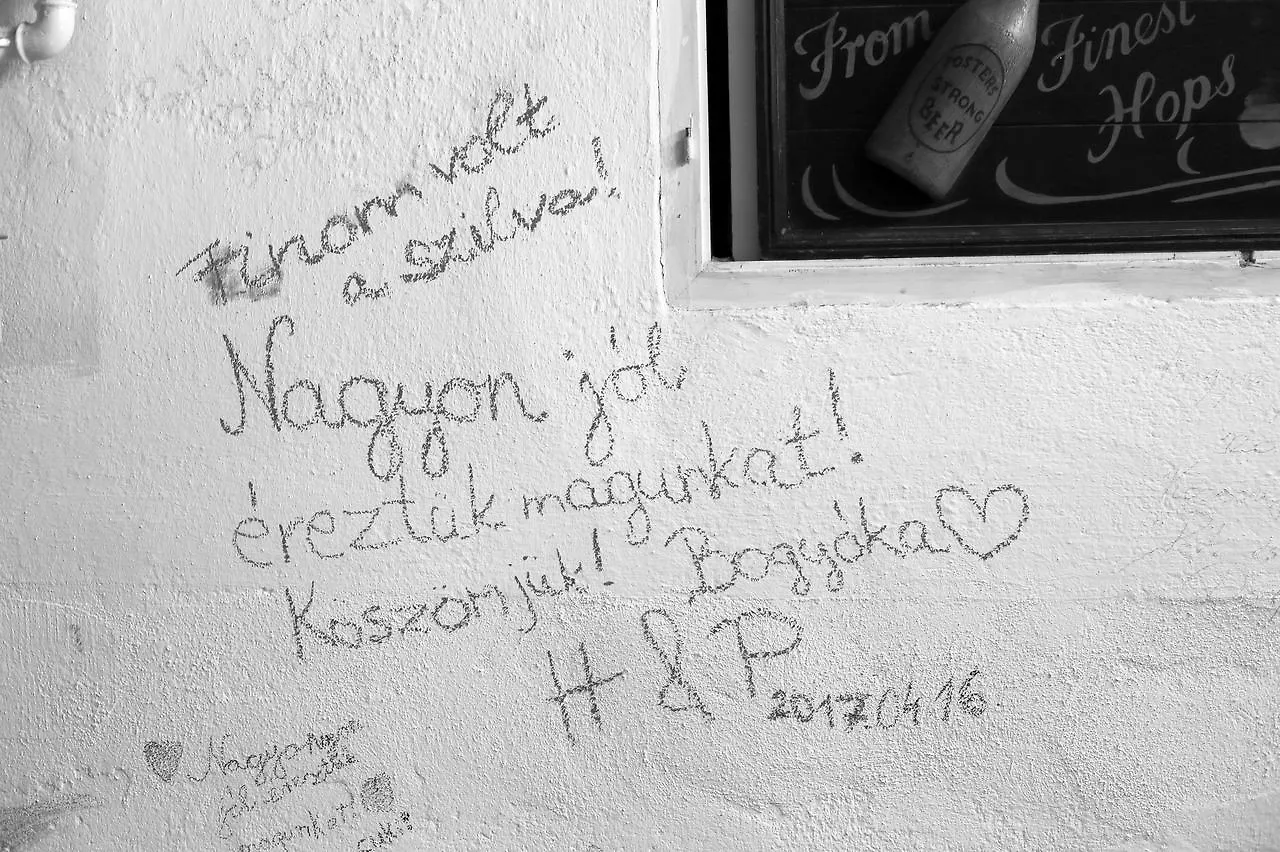 From Finest
Hops
FOSTERS
STRONG
BEER
Finom volt
a szilva!
Nagyon jól
éreztük magunkat!
Köszönjük! Bogyóka
H & P
2017 04 16
Nagyon
jól éreztük
magunkat!